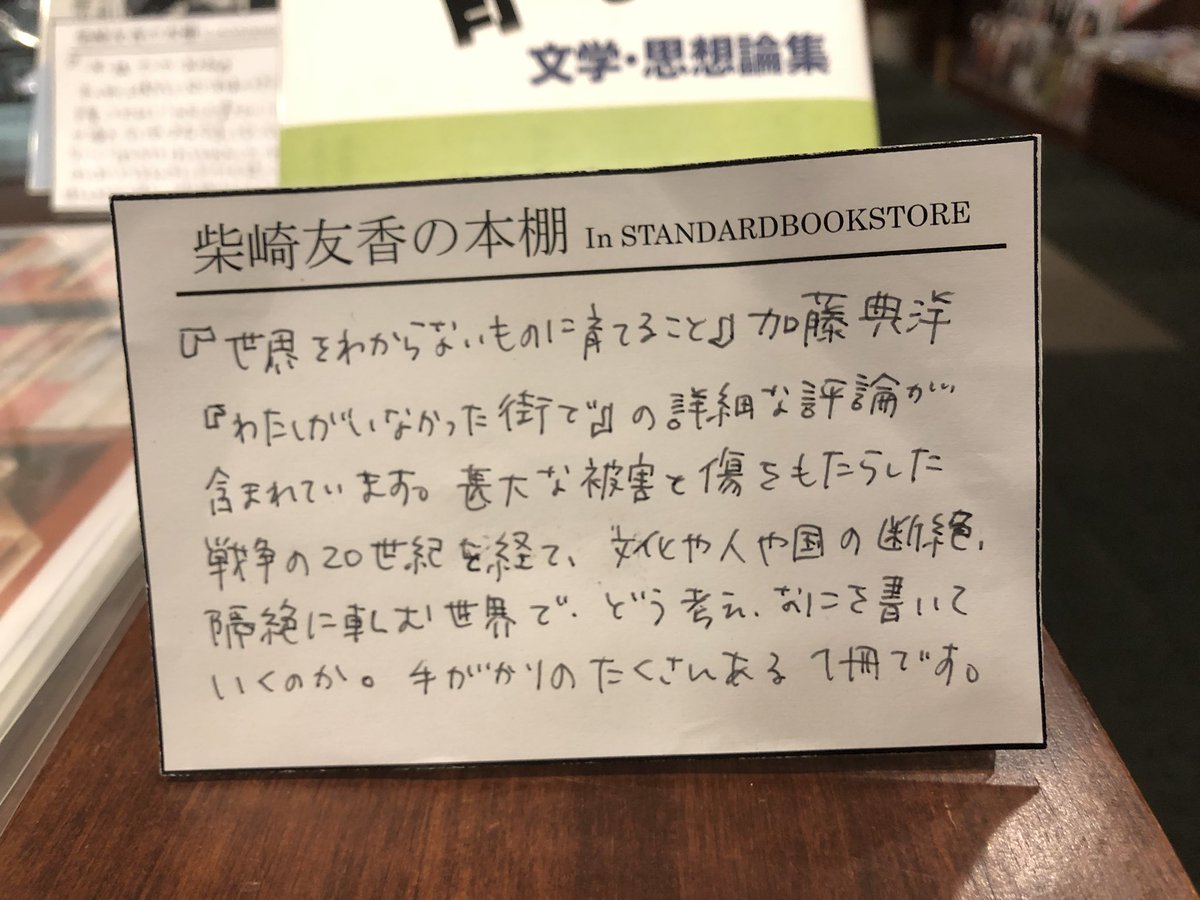 文学・思想論集
柴崎友香の本棚 In STANDARDBOOKSTORE
『世界をわからないものに育てること』加藤典洋
『わたしがいなかった街で』の詳細な評論が
含まれています。甚大な被害と傷をもたらした
戦争の20世紀を経て、文化や人や国の断絶、
隔絶に軋む世界で、どう考え、なにを書いて
いくのか。手がかりのたくさんある1冊です。